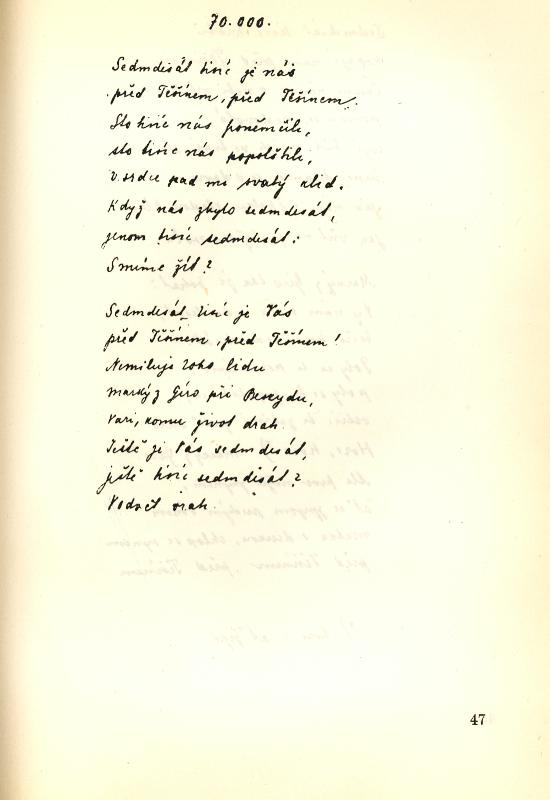 70.000.
Sedmdesát tisíc je nás
před Těšínem, před Těšínem.
Sto tisíc nás poněmčili,
sto tisíc nás popolštili,
v srdce pad mi svatý klid.
Když nás zbylo sedmdesát,
jenom tisíc sedmdesát:
Smíme žít?
Sedmdesát tisíc je Vás
před Těšínem, před Těšínem!
Nemiluje toho lidu
markýz Géro při Beskydu,
Vari, komu život drah.
Ještě je Vás sedmdesát,
ještě tisíc sedmdesát?
vrah.
47